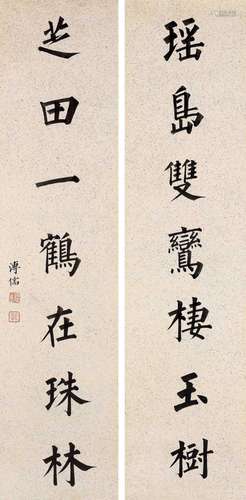 瑶島雙鸞棲玉樹
芝田一鶴在珠林
溥儒